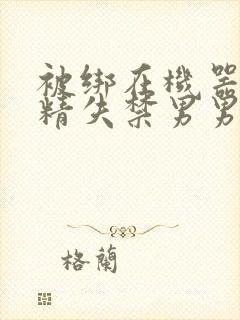 被绑在機器
精失禁男男
格蘭